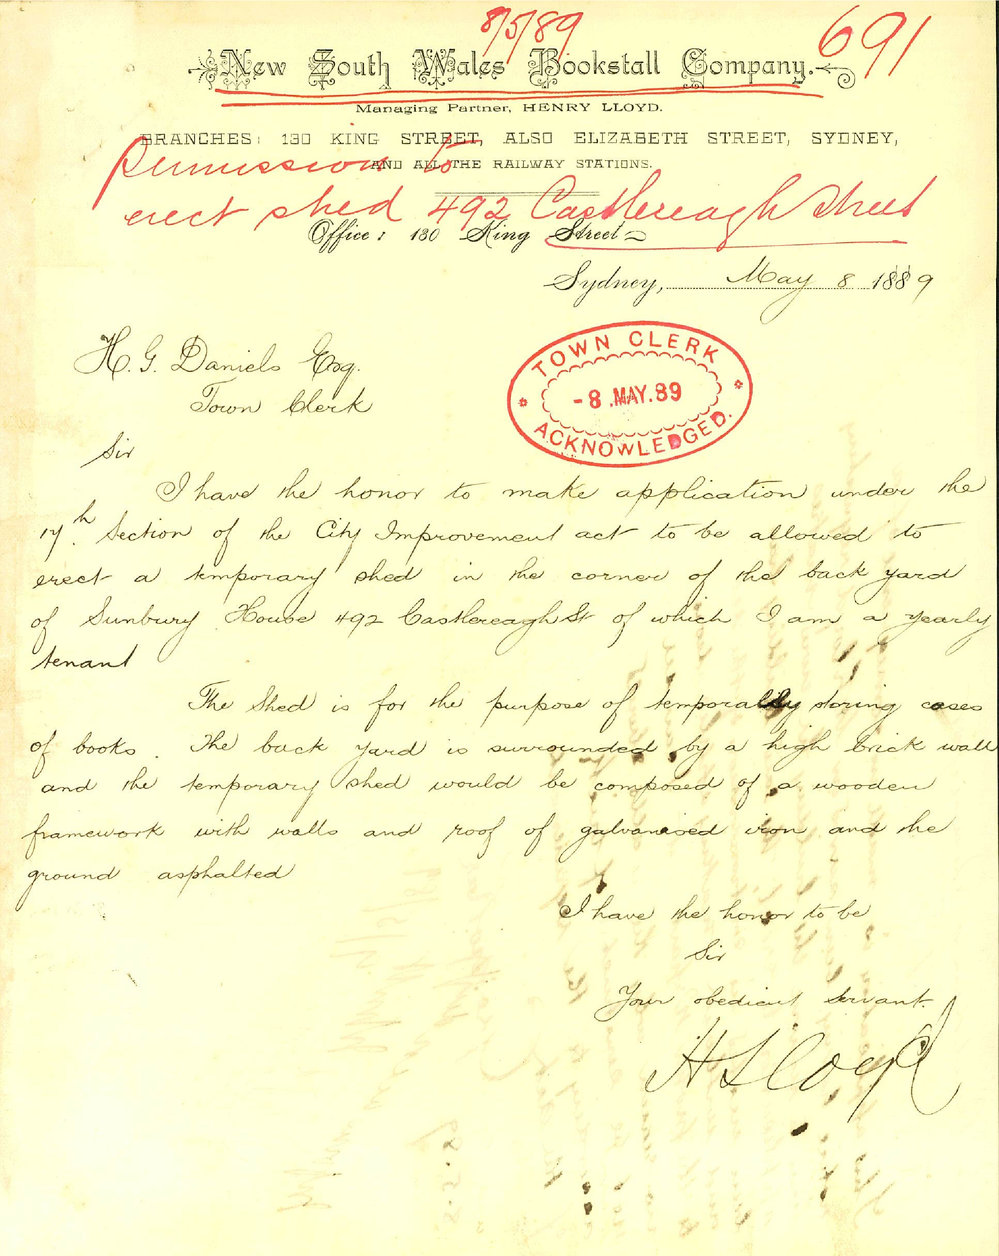 8/5/89
691
New South Wales Bookstall Company.
Managing Partner, HENRY LLOYD.
BRANCHES: 130 KING STREET, ALSO ELIZABETH STREET, SYDNEY,
AND ALL THE RAILWAY STATIONS.
Permission to
erect shed 492 Castlereagh Street
Office: 130 King Street
Sydney, May 8 1889
H. G. Daniels Esq.
Town Clerk
TOWN CLERK
- 8 .MAY.89
ACKNOWLEDGED.
Sir
I have the honor to make application under the
17th Section of the City Improvement act to be allowed to
erect a temporary shed in the corner of the back yard
of Sunbury House 492 Castlereagh St of which I am a yearly
tenant
The shed is for the purpose of temporally storing cases
of books. The back yard is surrounded by a high brick wall
and the temporary shed would be composed of a wooden
framework with walls and roof of galvanised iron and the
ground asphalted
I have the honor to be
Sir
Your obedient servant.
H Lloyd